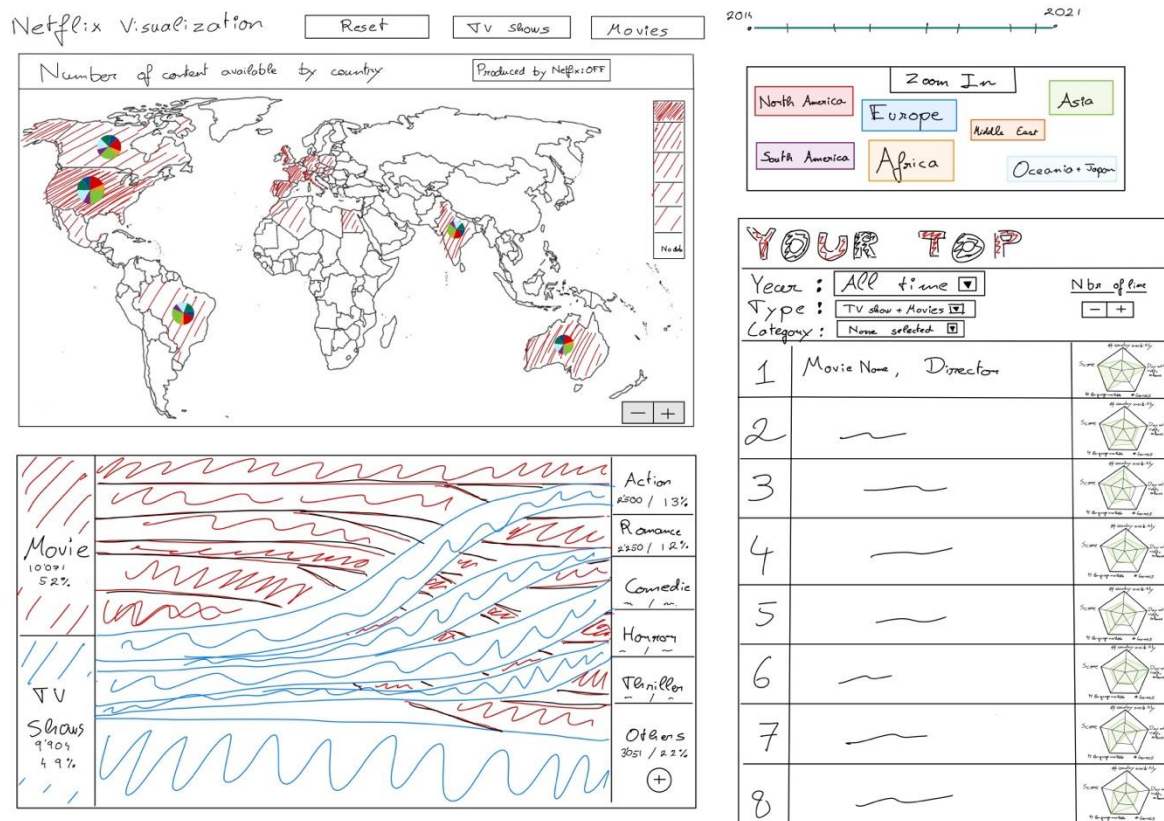 Netflix Visualization
Reset
TV shows
Movies
2014
2021
Number of content available by country
Produced by Netflix: OFF
No data
Zoom In
North America
Europe
Asia
Middle East
South America
Africa
Oceania + Japan
YOUR TOP
Year : All time
Type : TV show + Movies
Category : None selected
Nbr of line
- +
- +
1 Movie Name, Director
2
3
4
5
6
7
8
Score
Score
Score
Score
Score
Score
Score
Score
Movie
10'071
52%
TV
Shows
9'904
49%
Action
2'500 / 13%
Romance
2'250 / 12%
Comedie
Horror
Thriller
Others
3051 / 22%
+